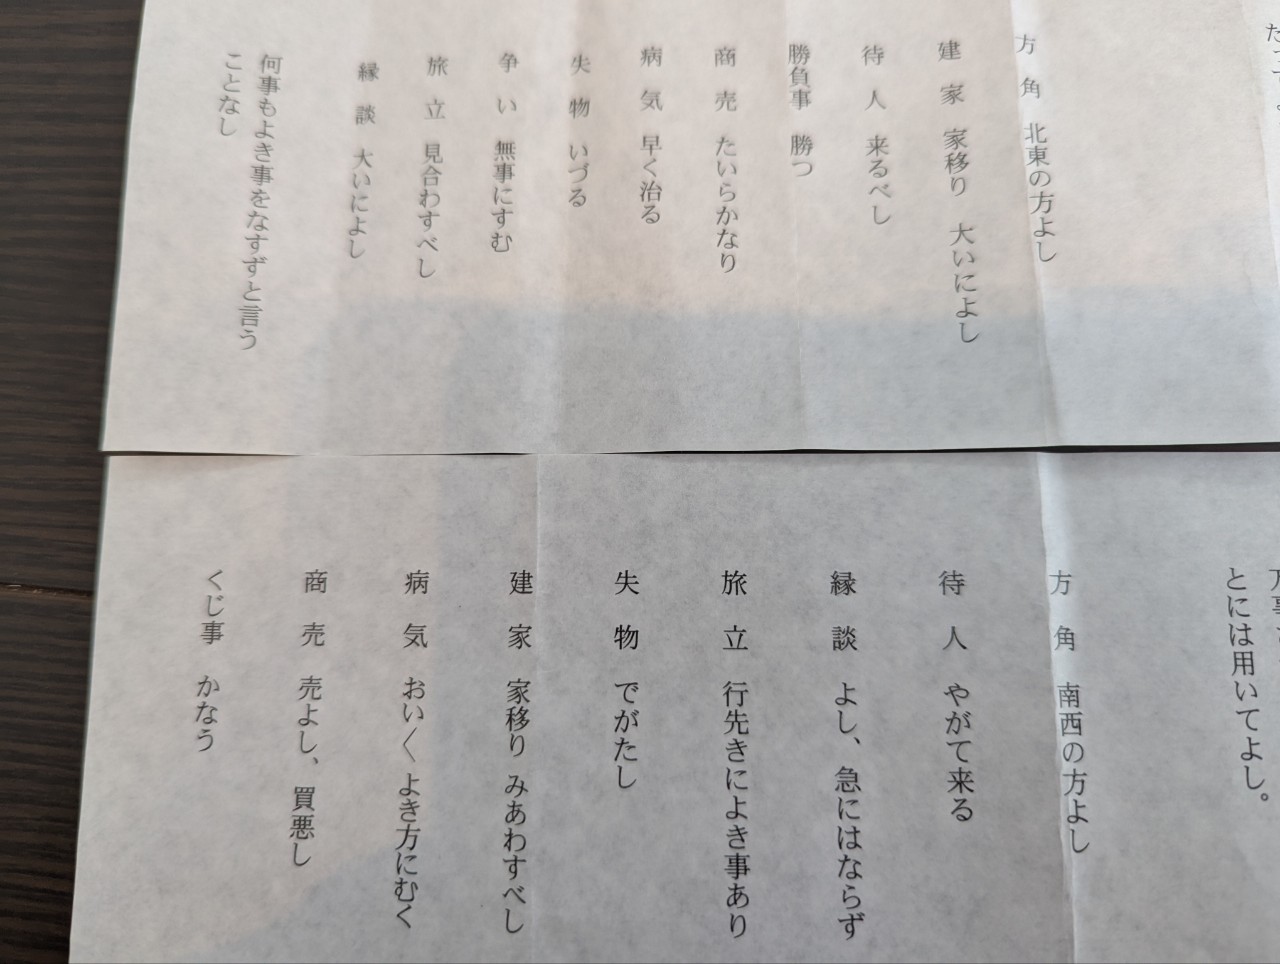 方角　北東の方よし
建家　家移り　大いによし
待人　来るべし
勝負事　勝つ
商売　たいらかなり
病気　早く治る
失物　いづる
争い　無事にすむ
旅立　見合わすべし
縁談　大いによし
何事もよき事をなすずと言う
ことなし
とには用いてよし。
方角　南西の方よし
待人　やがて来る
縁談　よし、急にはならず
旅立　行先きによき事あり
失物　でがたし
建家　家移り　みあわすべし
病気　おい〱よき方にむく
商売　売よし、買悪し
くじ事　かなう